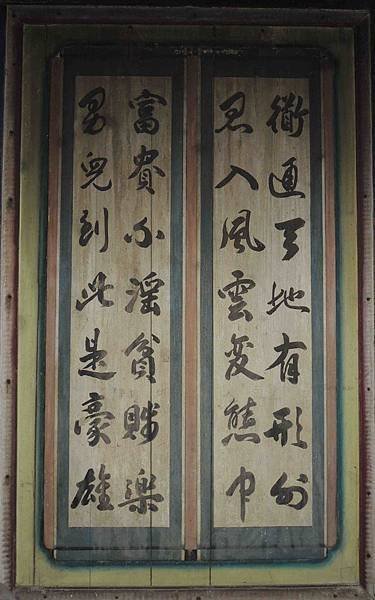 衜通天地有形外
思入風雲変態中
富貴不淫貧賤樂
男兒到此是豪雄